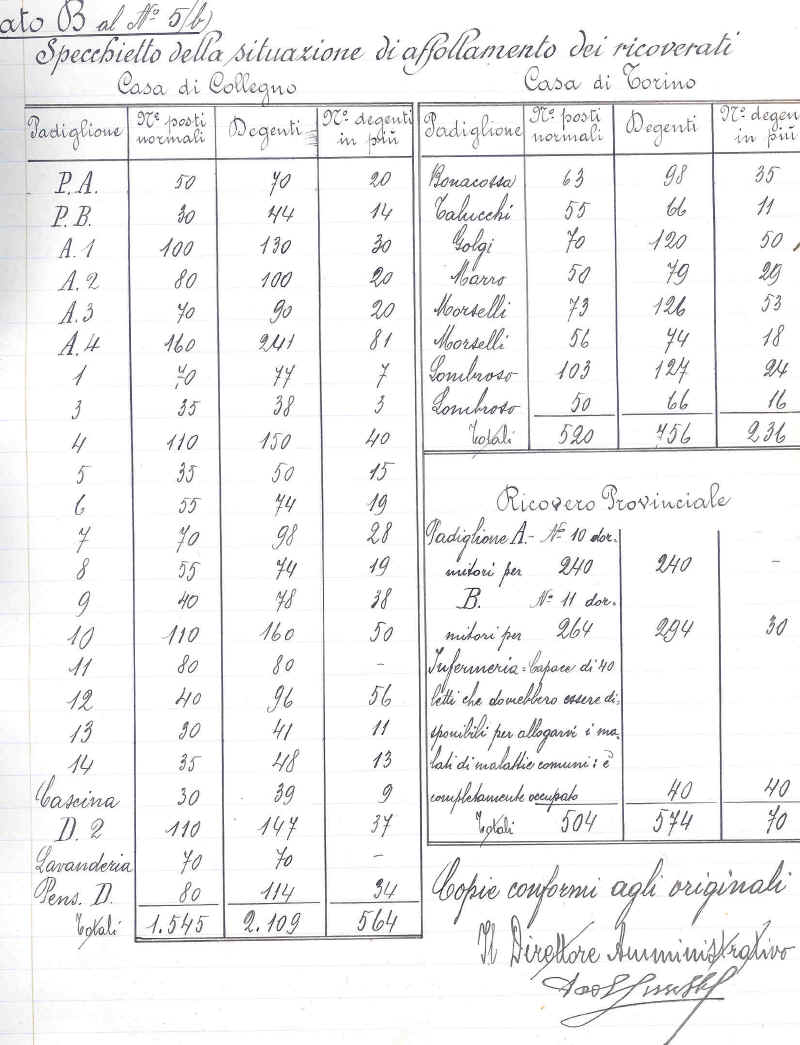 ato B al Nº 5/b)
Specchietto della situazione di affollamento dei ricoverati
Casa di Collegno
Padiglione Nº posti normali Degenti Nº degenti in più
P.A. 50 70 20
P.B. 30 44 14
A.1 100 130 30
A.2 80 100 20
A.3 70 90 20
A.4 160 241 81
1 70 77 7
3 35 38 3
4 110 150 40
5 35 50 15
6 55 74 19
7 70 98 28
8 55 74 19
9 40 78 38
10 110 160 50
11 80 80 -
12 40 96 56
13 30 41 11
14 35 48 13
Cascina 30 39 9
D. 2 110 147 37
Lavanderia 70 70 -
Pens. D. 80 114 34
Totali 1.545 2.109 564
Casa di Torino
Padiglione Nº posti normali Degenti Nº degen in più
Bonacossa 63 98 35
Talucchi 55 66 11
Golgi 70 120 50
Marro 50 79 29
Morselli 73 126 53
Morselli 56 74 18
Lombroso 103 127 24
Lombroso 50 66 16
Totali 520 756 236
Ricovero Provinciale
Padiglione A.- Nº 10 dor.
mitori per 240 240 -
B. Nº 11 dor.
mitori per 264 294 30
Infermeria = Capace di 40
letti che dovrebbero essere di,
sponibili per allogarvi i ma,
lati di malattie comuni: è
completamente occupato 40 40
Totali 504 574 70
Copie conformi agli originali
Il Direttore Amministrativo